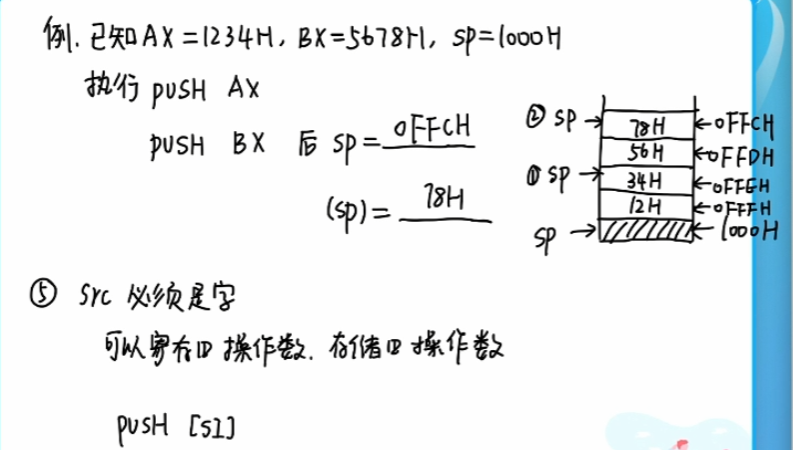 例. 已知AX=1234H, BX=5678H, SP=1000H
执行 PUSH AX
PUSH BX 后 SP=0FFCH
(SP)=78H
② SP→ 78H ←0FFCH
56H ←0FFDH
① SP→ 34H ←0FFEH
12H ←0FFFH
SP→ ←1000H
⑤ Src 必须是字
可以寄存四 操作数. 存储四 操作数
PUSH [SI]